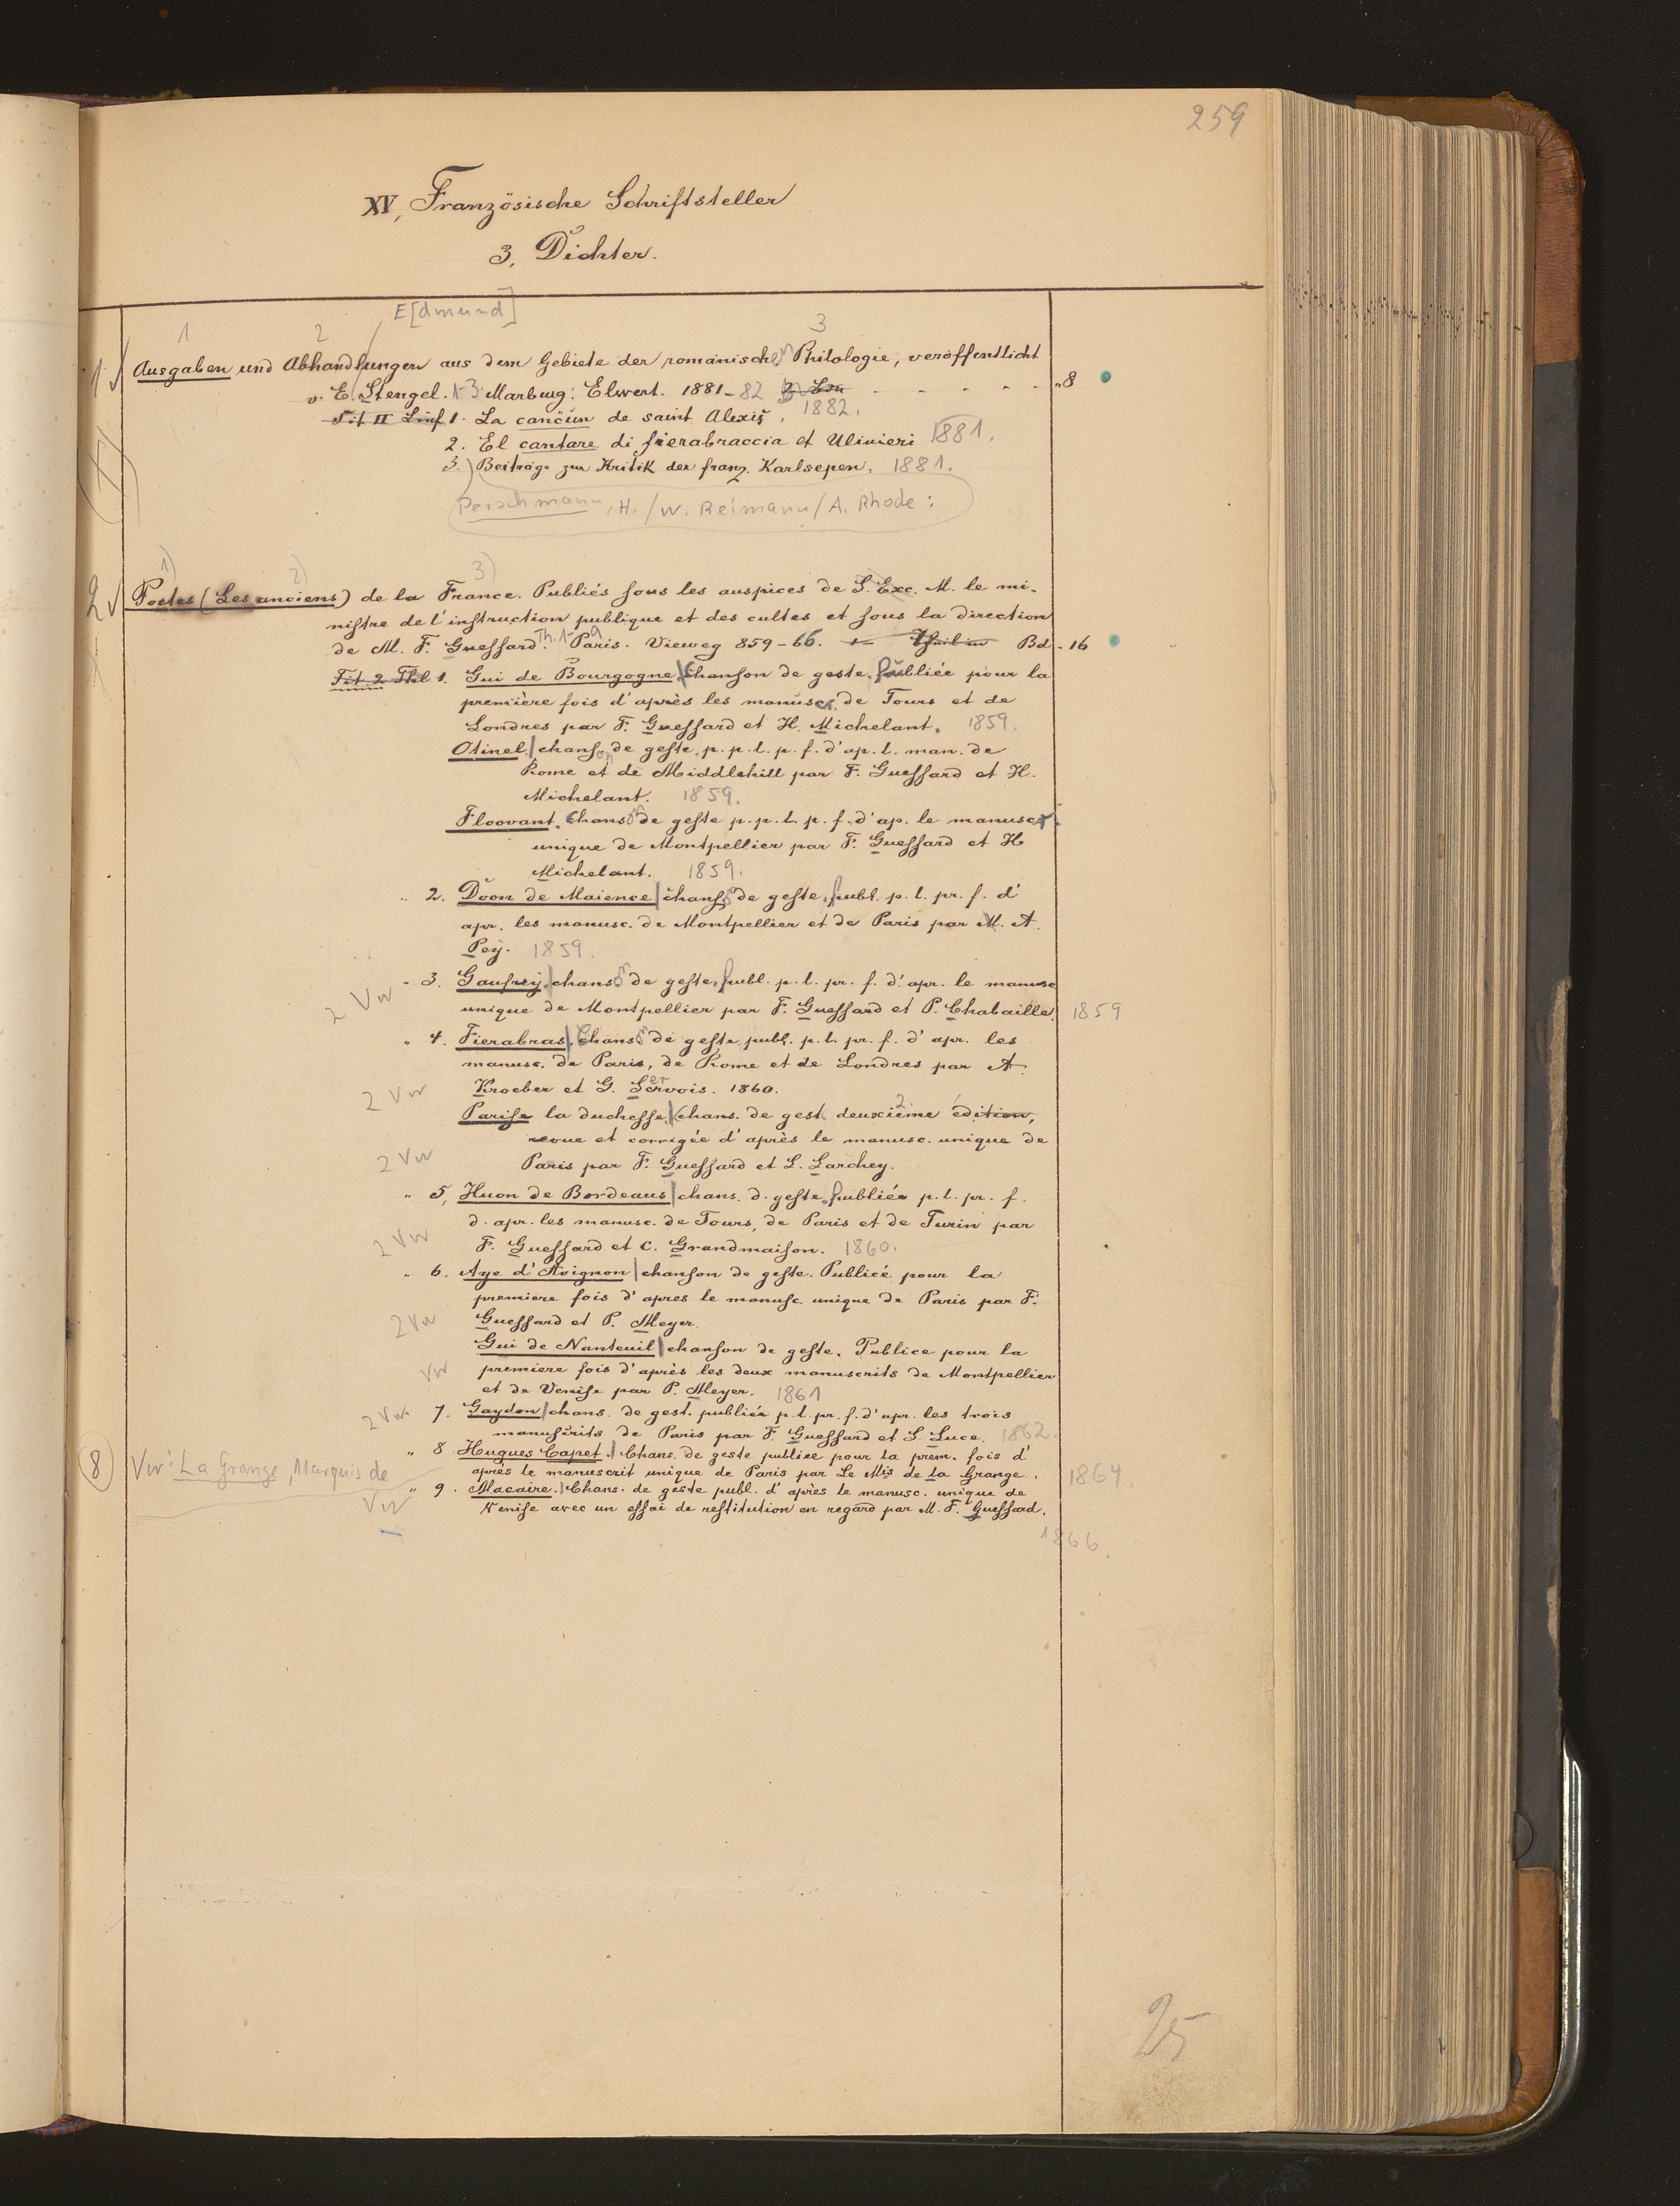 259
XV, Französische Schriftsteller
3, Dichter.
E[dmund]
1 2 3
1 Ausgaben und Abhandlungen aus dem Gebiete der romanischen Philologie, veröffentlicht
v. E. Stengel. 1-3 Marburg: Elwert. 1881-82 - - - - - - „8
Tit II 1. La cancün de saint Alexis. 1882.
2. El cantare di fierabraccia et Ulivieri 1881.
3. Beiträge zur Kritik der franz. Karlsepen. 1881.
Perschmann, H. / W. Reimann / A. Rhode:
1) 2) 3)
2 Poetes (Les anciens) de la France. Publiés sous les auspices de S. Exc. M. le mi-
nistre de l'instruction publique et des cultes et sous la direction
de M. F. Guessard. Th. 1-9 Paris. Vieweg 859-66. Bd - 16
Tit 2 Thl 1. Gui de Bourgogne, chanson de geste, publiée pour la
première fois d'après les manuscr. de Tours et de
Londres par F. Guessard et H. Michelant. 1859.
Otinel, chanson de geste, p. p. l. p. f. d'ap. l. man. de
Rome et de Middlehill par F. Guessard et H.
Michelant. 1859.
Floovant. Chanson de geste p. p. l. p. f. d'ap. le manuscr.
unique de Montpellier par F. Guessard et H
Michelant. 1859.
„ 2. Doon de Maience chans. de geste, publ. p. l. pr. f. d'
apr. les manusc. de Montpellier et de Paris par M. A.
Pey. 1859.
2 Vw „ 3. Gaufrey, chanson de geste, publ. p. l. pr. f. d'apr. le manusc
unique de Montpellier par F. Guessard et P. Chabaille. 1859
„ 4. Fierabras, Chans. de geste publ. p. l. pr. f. d'apr. les
manusc. de Paris, de Rome et de Londres par A.
2 Vw Kroeber et G. Servois. 1860.
Parise la duchesse, chans. de gest. deuxième 2. édition,
revue et corrigée d'après le manusc. unique de
2 Vw Paris par F. Guessard et L. Larchey.
„ 5, Huon de Bordeaus chans. d. geste, publiée p. l. pr. f.
d. apr. les manusc. de Tours, de Paris et de Turin par
2 Vw F. Guessard et C. Grandmaison. 1860.
„ 6. Aye d'Avignon chanson de geste. Publicé pour la
premiere fois d'apres le manusc. unique de Paris par F.
2 Vw Guessard et P. Meyer.
Gui de Nanteuil chanson de geste. Publice pour la
Vw premiere fois d'après les deux manuscrits de Montpellier
et de Venise par P. Meyer. 1861
2 Vw. 7. Gaydon chans. de gest. publiée p. l. pr. f. d'apr. les trois
manuscrits de Paris par F. Guessard et S. Luce. 1862.
„ 8. Hugues Capet. Chans. de geste publiee pour la prem. fois d'
8 Vw: La Grange, Marquis de
après le manuscrit unique de Paris par Le Mis de la Grange. 1864.
Vw „ 9. Macaire. Chans. de geste publ. d'apres le manusc. unique de
Venise avec un essai de restitution en regard par M. F. Guessard.
1866.
25